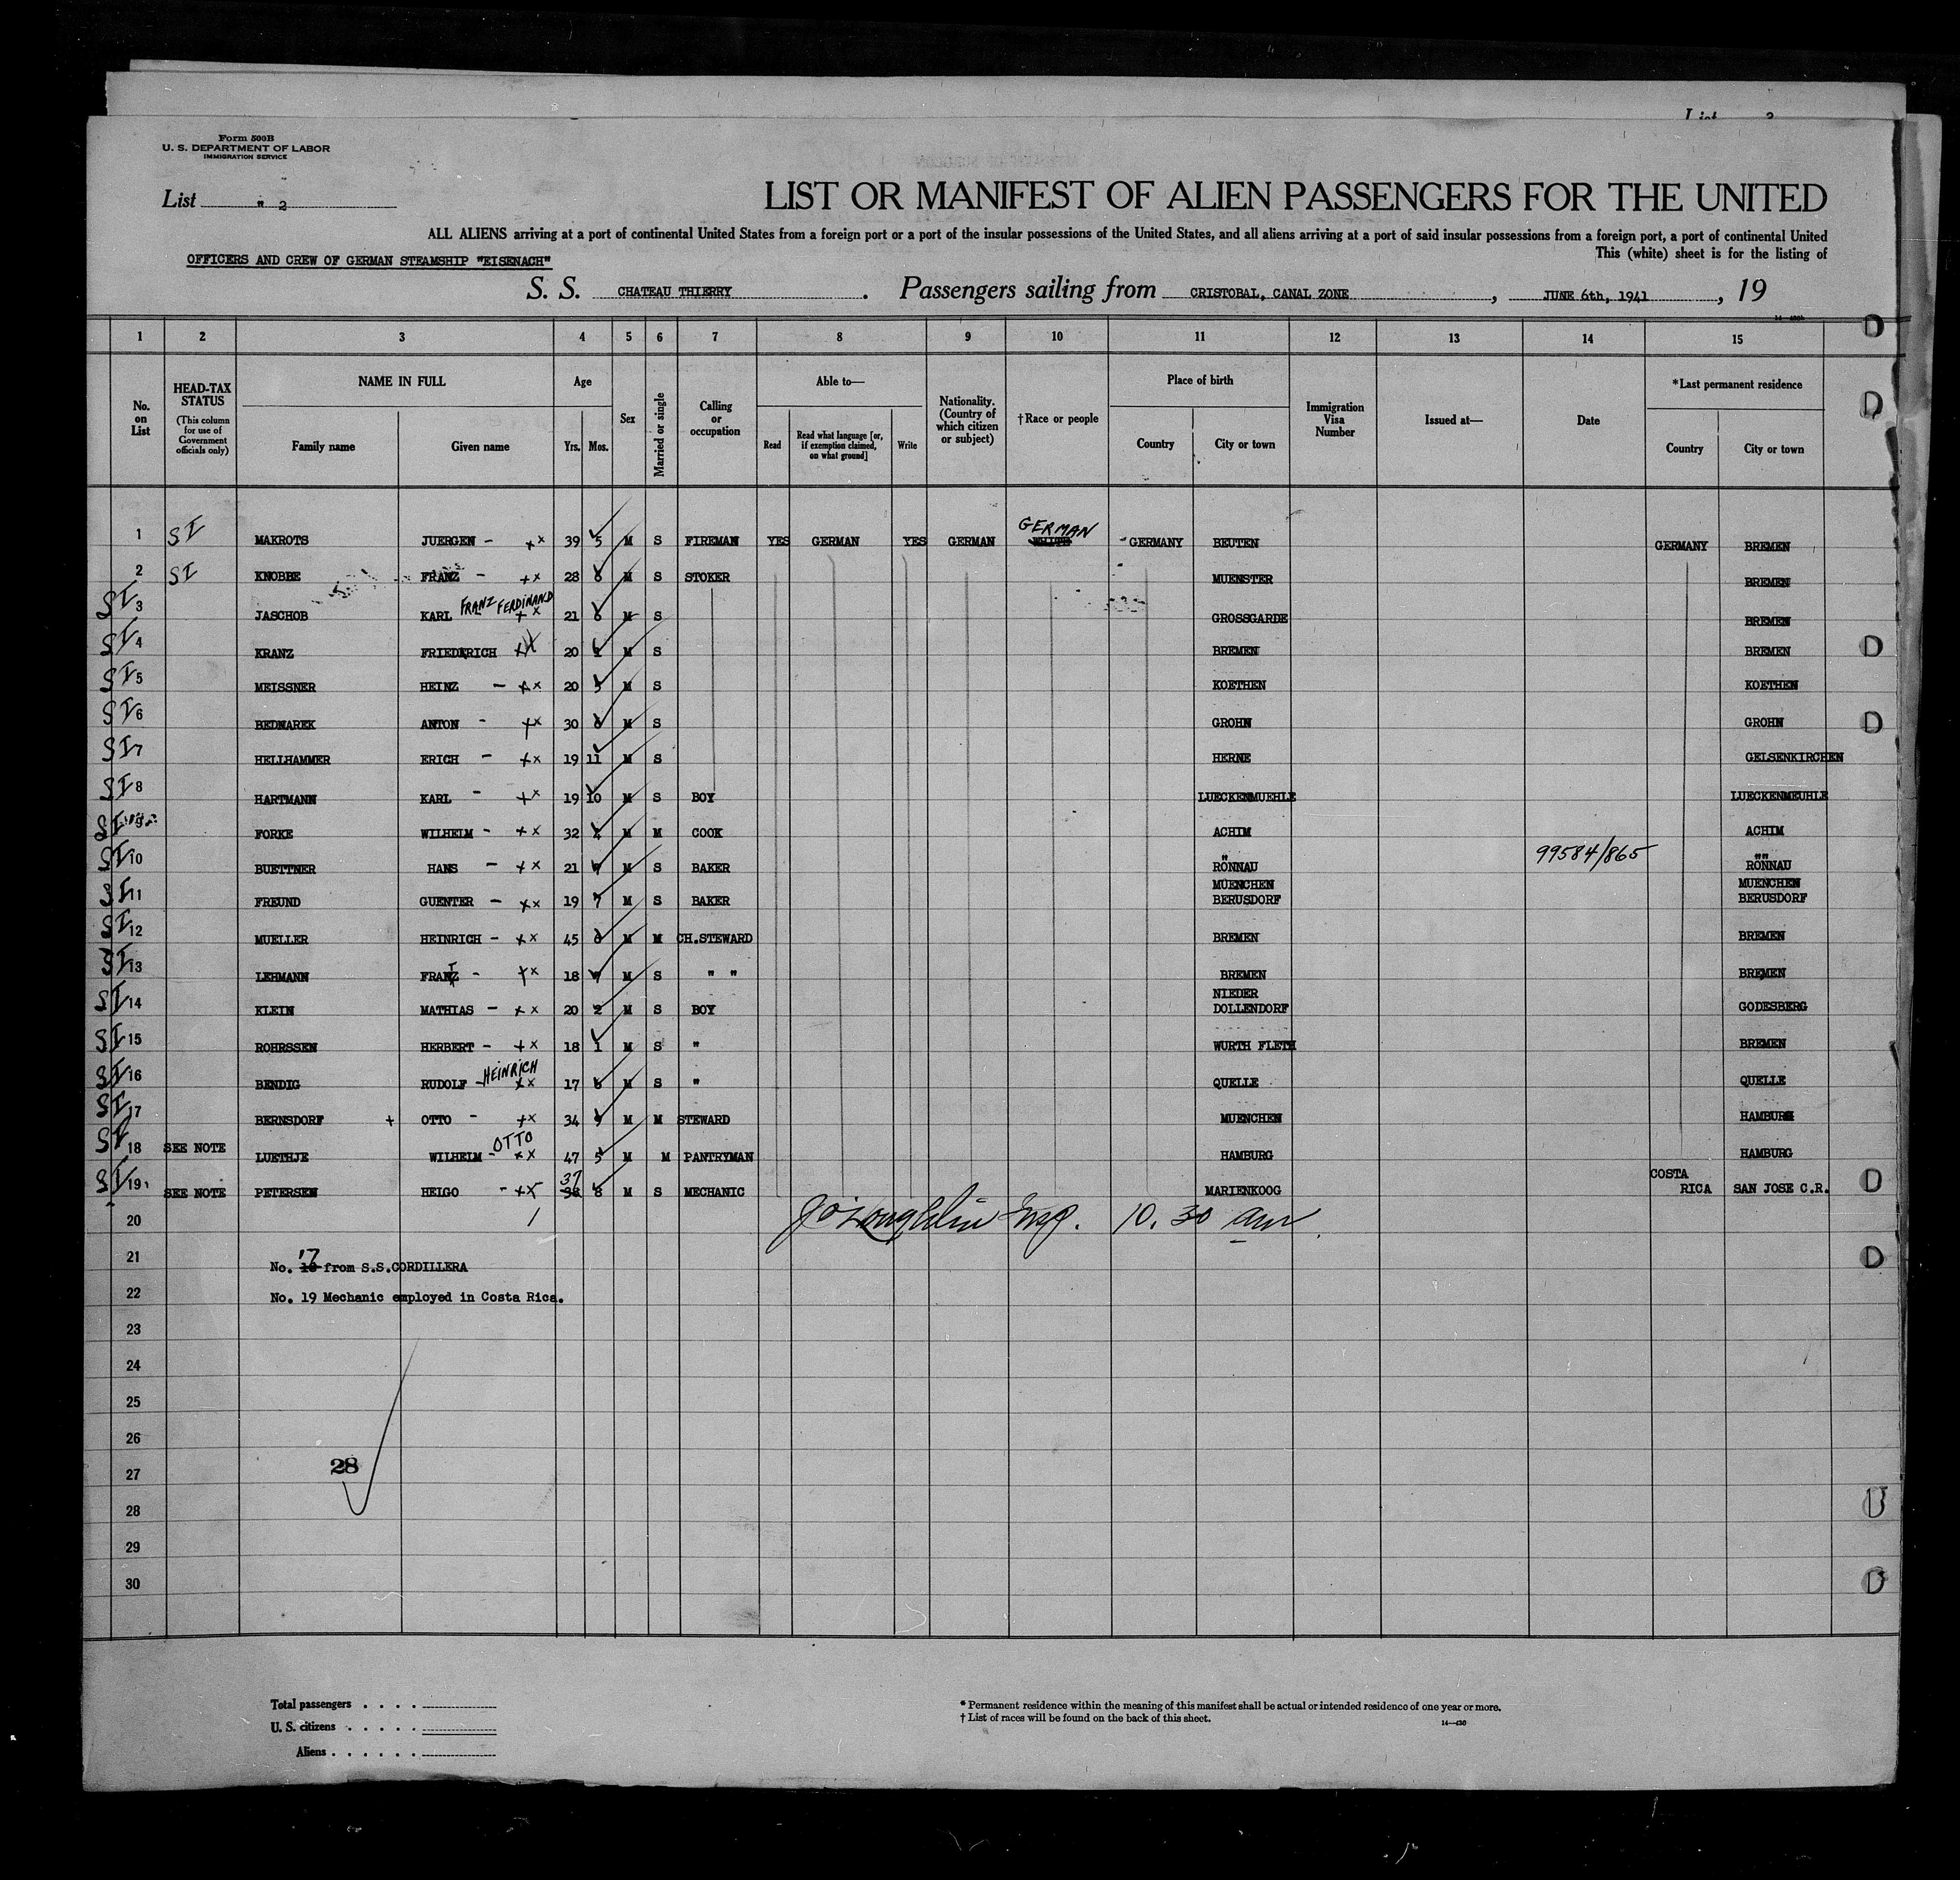 List 2
Form 500B
U. S. DEPARTMENT OF LABOR
IMMIGRATION SERVICE
List " 2
LIST OR MANIFEST OF ALIEN PASSENGERS FOR THE UNITED
ALL ALIENS arriving at a port of continental United States from a foreign port or a port of the insular possessions of the United States, and all aliens arriving at a port of said insular possessions from a foreign port, a port of continental United
This (white) sheet is for the listing of
OFFICERS AND CREW OF GERMAN STEAMSHIP "EISENACH"
S. S. CHATEAU THIERRY. Passengers sailing from CRISTOBAL, CANAL ZONE, JUNE 6th, 1941, 19
1 2 3 4 5 6 7 8 9 10 11 12 13 14 15
No. on List
HEAD-TAX STATUS (This column for use of Government officials only)
NAME IN FULL Family name Given name
Age Yrs. Mos.
Sex
Married or single
Calling or occupation
Able to— Read Read what language [or, if exemption claimed, on what ground] Write
Nationality. (Country of which citizen or subject)
†Race or people
Place of birth Country City or town
Immigration Visa Number
Issued at—
Date
*Last permanent residence Country City or town
1 SI MAKROTS JUERGEN - xx 39 5 M S FIREMAN YES GERMAN YES GERMAN GERMAN GERMANY BEUTEN GERMANY BREMEN
2 SI KNOBBE FRANZ - xx 28 6 M S STOKER MUENSTER BREMEN
SI 3 JASCHOB KARL FRANZ FERDINAND xx 21 6 M S GROSSGARDE BREMEN
SI 4 KRANZ FRIEDERICH xx 20 M S BREMEN BREMEN
SI 5 MEISSNER HEINZ - xx 20 5 M S KOETHEN KOETHEN
SI 6 BEDNAREK ANTON - xx 30 6 M S GROHN GROHN
SI 7 HELLHAMMER ERICH - xx 19 11 M S HERNE GELSENKIRCHEN
SI 8 HARTMANN KARL - xx 19 10 M S BOY LUECKENMUEHLE LUECKENMEUHLE
SI 9 FORKE WILHELM - xx 32 4 M M COOK ACHIM ACHIM
SI 10 BUETTNER HANS - xx 21 9 M S BAKER RÖNNAU 99584/865 RÖNNAU
SI 11 FREUND GUENTER - xx 19 7 M S BAKER MUENCHEN BERUSDORF MUENCHEN BERUSDORF
SI 12 MUELLER HEINRICH - xx 45 6 M M CH.STEWARD BREMEN BREMEN
SI 13 LEHMANN FRANZ - xx 18 9 M S " " BREMEN BREMEN
SI 14 KLEIN MATHIAS - xx 20 2 M S BOY NIEDER DOLLENDORF GODESBERG
SI 15 ROHRSSEN HERBERT - xx 18 1 M S " WURTH FLETH BREMEN
SI 16 BENDIG RUDOLF - HEINRICH xx 17 6 M S " QUELLE QUELLE
SI 17 BERNSDORF + OTTO - xx 34 9 M M STEWARD MUENCHEN HAMBURG
SI 18 SEE NOTE LUETHJE WILHELM - OTTO xx 47 5 M M PANTRYMAN HAMBURG HAMBURG
SI 19 SEE NOTE PETERSEN HEIGO - xx 37 38 8 M S MECHANIC MARIENKOOG COSTA RICA SAN JOSE C.R.
20 J O'Loughlin Insp. 10.30 am
21 No. 17 18 from S.S.CORDILLERA
22 No. 19 Mechanic employed in Costa Rica.
23
24
25
26
28
27
28
29
30
Total passengers
U. S. citizens
Aliens
* Permanent residence within the meaning of this manifest shall be actual or intended residence of one year or more.
† List of races will be found on the back of this sheet.
14—430